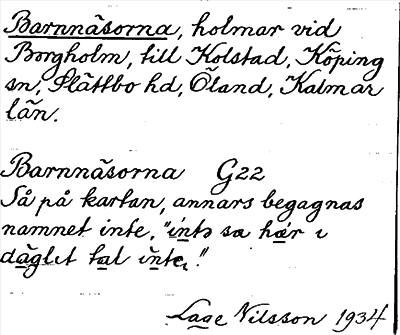 Barnnäsorna, holmar vid
Borgholm, till Kolstad, Köping
sn, Slättbo hd, Öland, Kalmar
län.
Barnnäsorna G22
Så på kartan, annars begagnas
namnet inte, "intə sa hær i
dăglit tal inte."
Lage Nilsson 1934